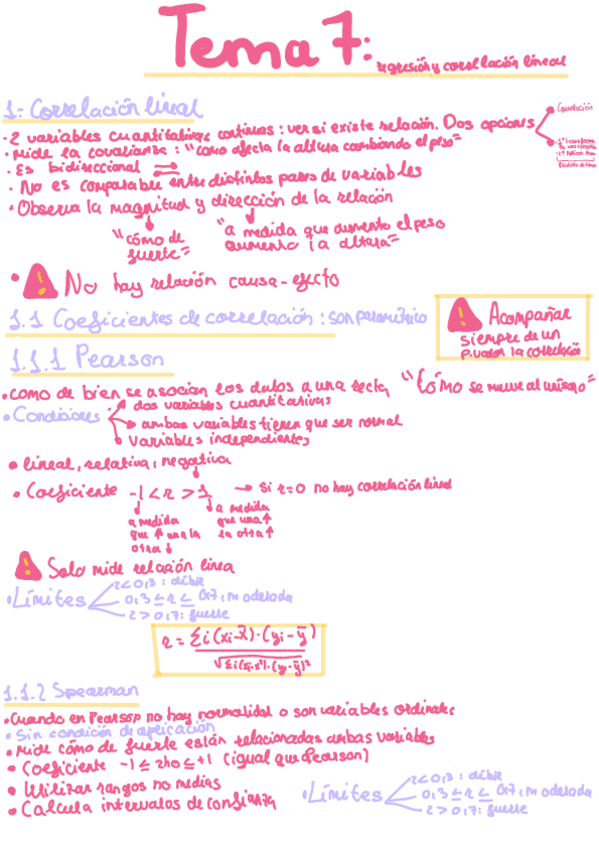 Tema 7: regresión y correlación lineal
1- Correlación lineal
· 2 variables cuantitativas continuas : ver si existe relación. Dos opciones
Correlación
· Mide la covarianza : "como afecta la altura cambiando el peso"
· Es bidireccional
· No es comparable entre distintos pares de variables
· Observa la magnitud y dirección de la relación
"cómo de fuerte"
"a medida que aumento el peso aumento la altura"
· ! No hay relación causa-efecto
1.1 Coeficientes de correlación : son paramétrico
! Acompañar
siempre de un
p.valor la correlación
1.1.1 Pearson
· como de bien se asocian los datos a una recta "Cómo se mueve al unísono"
· Condiciones
dos variables cuantitativas
ambas variables tienen que ser normal
variables independientes
· lineal, relativa, negativa
· Coeficiente -1 < r > 1 → Si r=0 no hay correlación lineal
a medida
que ↑ una la
otra ↓
a medida
que una ↑
la otra ↑
! Solo mide relación linea
· Límites
r < 0,3 : débil
0,3 ≤ r ≤ 0,7 : moderada
r > 0,7 : fuerte
r = Σi(xi-x̄)·(yi-ȳ)
√Σi(xi-x̄)²·(yi-ȳ)²
1.1.2 Spearman
· Cuando en Pearson no hay normalidad o son variables ordinales
· Sin condición de aplicación
· Mide cómo de fuerte están relacionadas ambas variables
· Coeficiente -1 ≤ rho ≤ +1 (igual que Pearson)
· Utilizar rangos no medias
· Calcula intervalos de confianza
· Límites
r < 0,3 : débil
0,3 ≤ r ≤ 0,7 : moderada
r > 0,7 : fuerte